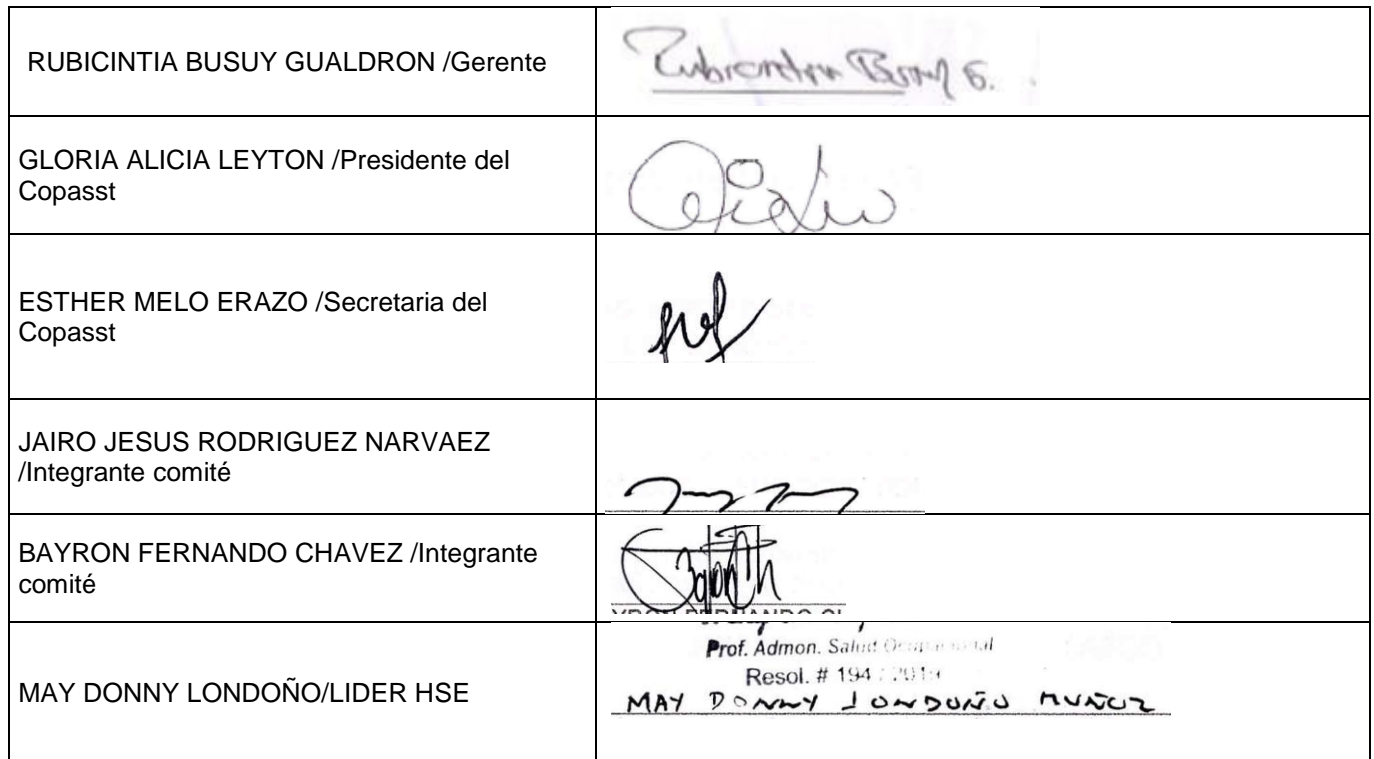 RUBICINTIA BUSUY GUALDRON /Gerente
GLORIA ALICIA LEYTON /Presidente del
Copasst
ESTHER MELO ERAZO /Secretaria del
Copasst
JAIRO JESUS RODRIGUEZ NARVAEZ
/Integrante comité
BAYRON FERNANDO CHAVEZ /Integrante
comité
MAY DONNY LONDOÑO/LIDER HSE
Prof. Admon. Salud Ocupacional
Resol. # 194
MAY DONNY LONDOÑO MUÑOZ